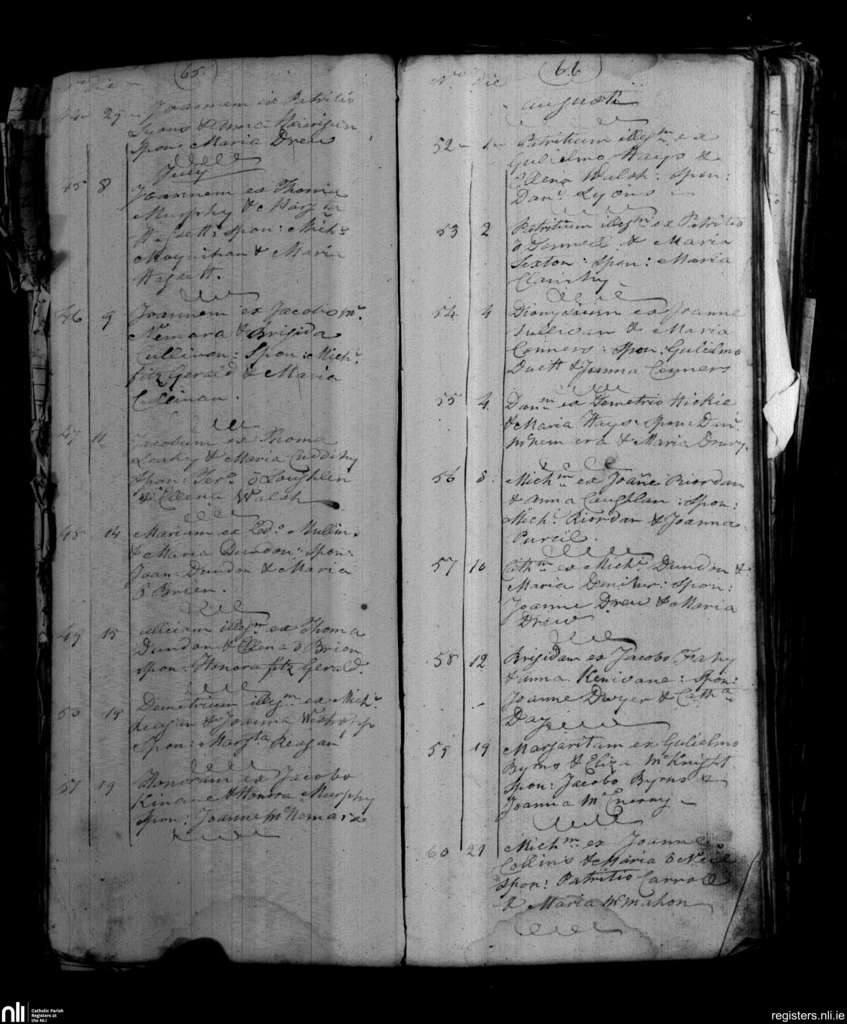 (65)
No Die
44 29 Joannem ex Patritio
Lyons & Anna
Spon: Maria Drew
July
45 8 Joannem ex Thoma
Murphy & Margta
Hassett: Spon: Michl
Moynihan & Maria
Hassett.
46 9 Joannem ex Jacobo Mc
Nemara & Brigida
Cullinan: Spon: Michl
fitz Gerald & Maria
Cullinan.
47 11 Jacobum ex Thoma
Leahy & Maria Cuddihy
Spon: Terce ô Loughlin
& Ellena Walsh
48 14 Mariam ex Edo Mullins
& Maria Dundon: Spon:
Joan Dundon & Maria
ô Brien.
49 15 illegm ex Thoma
Dundon & Ellena ô Brien
Spon: Honora fitz Gerald.
50 18 Demetrium illegm ex Michl
Reagan & Joanna
Spon: Margta Reagan
51 19 Honoram ex Jacobo
Kinane & Honora Murphy
Spon: Joanne McNemara
(66)
No Die
Augusti
52 1 Patritium illegm ex
Gulielmo Hays &
Ellena Walsh: Spon:
Danl Lyons
53 2 Patritium illegm ex Patritio
ô Donnell & Maria
Sexton: Spon: Maria
Clanchy
54 4 Dionysium ex Joanne
Sullivan & Maria
Conners: Spon: Gulielmo
Duett & Joanna Conners
55 4 Danm ex Demetrio Hickie
& Maria Hays: Spon: Danl
McNemara & Maria Drury.
56 8 Michm ex Joane Riordan
& Anna Caughlan: Spon:
Michl Riordan & Joanna
Purcil.
57 10 Cathm ex Michl Dundon &
Maria: Spon:
Joanne Drew & Maria
Drew
58 12 Brigidam ex Jacobo Fahy
& Anna Kenivane: Spon:
Joanne Dwyer & Catha
Day
59 19 Margaritam ex Gulielmo
Byrns & Eliza McKnight
Spon: Jacobo Byrns &
Joanna McNerny
60 21 Michm ex Joanne
Collins & Maria ô Neil
Spon: Patritio Carroll
& Maria McMahon
nli
Catholic Parish
Registers at
the NLI
registers.nli.ie